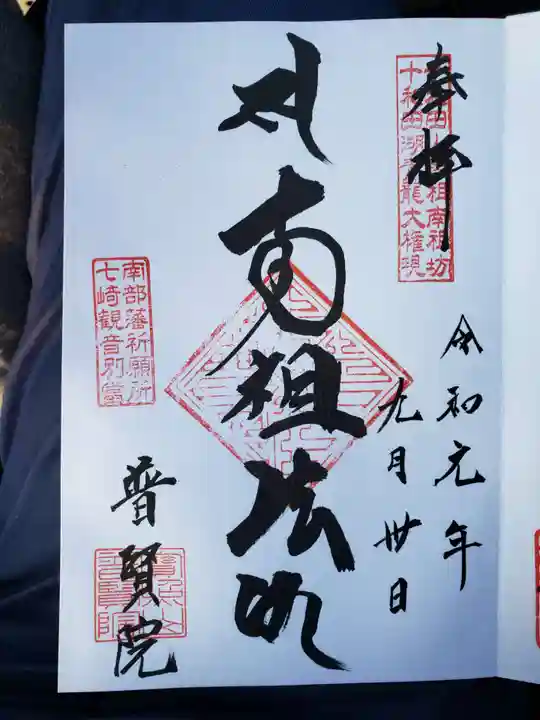 奉拝
十和田湖青龍大権現
令和元年
九月卅日
南祖法師
南部藩祈願所
七崎観音別當
普賢院